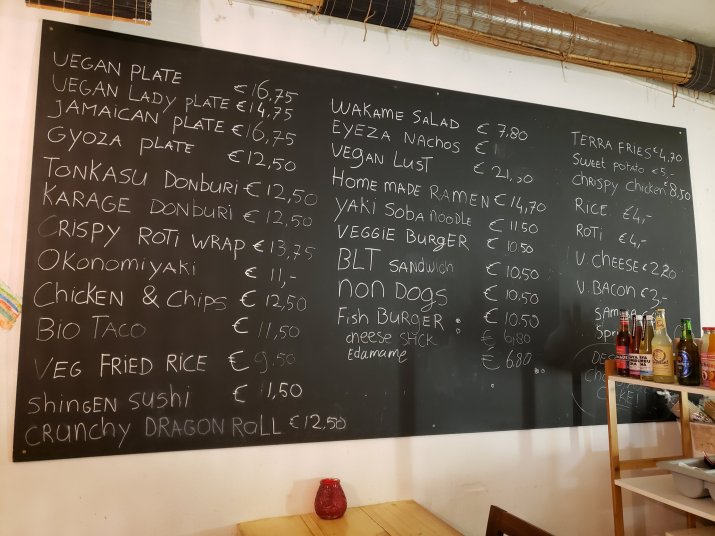 VEGAN PLATE €16,75
VEGAN LADY PLATE €14,75
JAMAICAN PLATE €16,75
GYOZA PLATE €12,50
TONKASU DONBURI €12,50
KARAGE DONBURI €12,50
CRISPY ROTI WRAP €13,75
OKONOMIYAKI € 11,-
CHICKEN & CHIPS €12,50
BIO TACO € 11,50
VEG FRIED RICE € 9.50
SHINGEN SUSHI € 11,50
CRUNCHY DRAGON ROLL €12,50
WAKAME SALAD € 7,80
EYEZA NACHOS €
VEGAN LUST € 21,50
HOME MADE RAMEN €14,70
YAKI SOBA NOODLE € 11.50
VEGGIE BURGER € 10.50
BLT SANDWICH € 10,50
NON DOGS € 10,50
FISH BURGER € 10.50
CHEESE STICK € 6,80
EDAMAME € 6.80
TERRA FRIES €4,70
SWEET POTATO €5,-
CHRISPY CHICKEN €8,50
RICE €4,-
ROTI €4,-
V. CHEESE €2,20
V. BACON €3,-